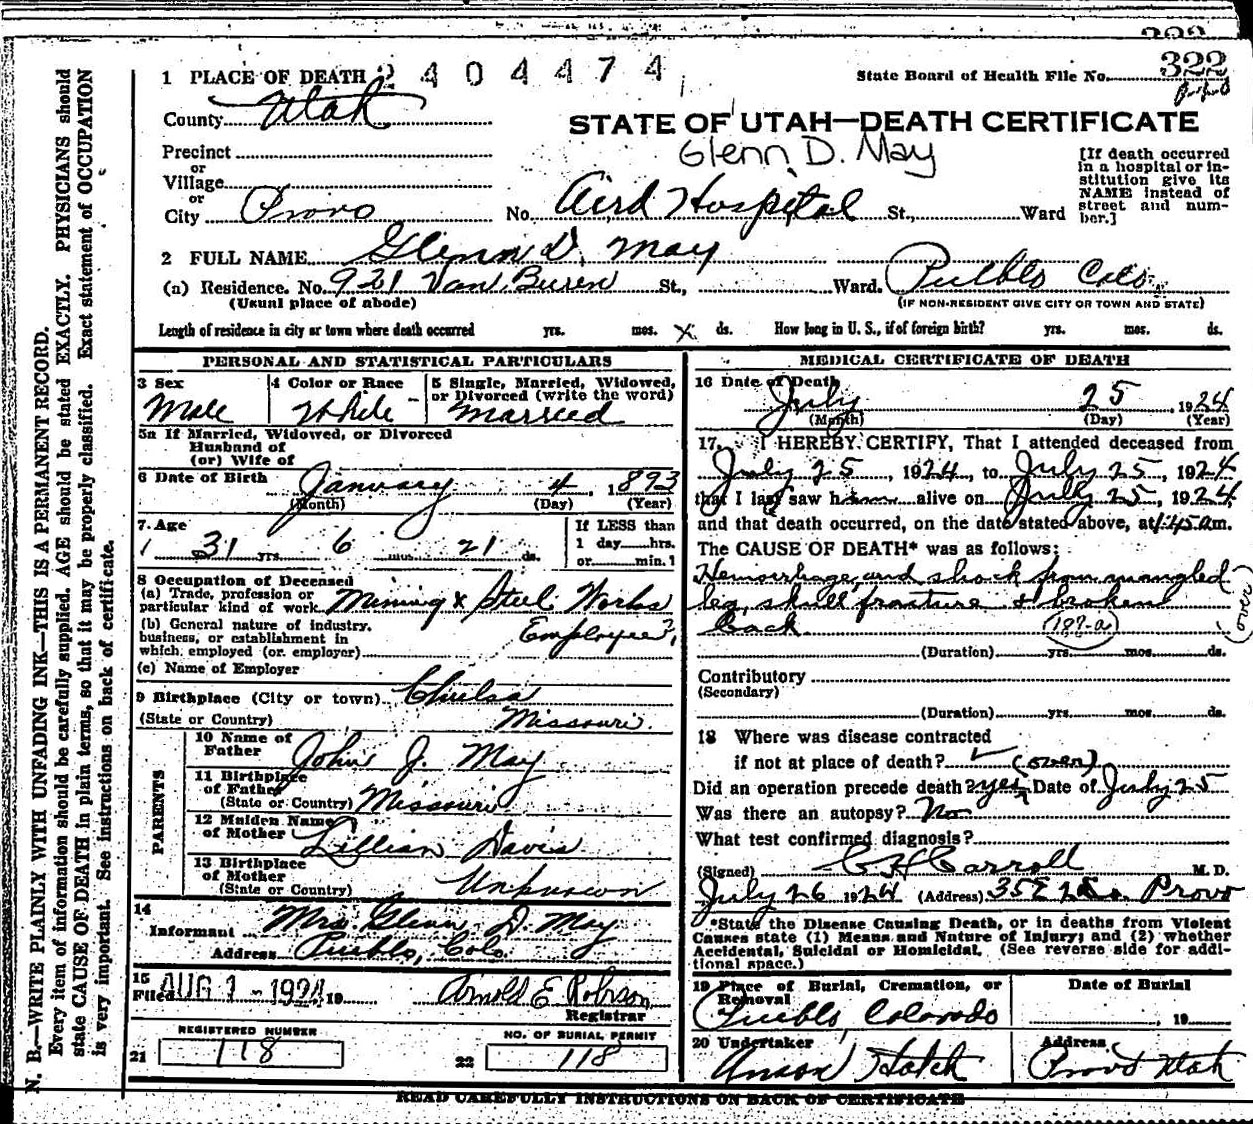 322
2404474
1 PLACE OF DEATH
State Board of Health File No. 322
County Utah
STATE OF UTAH—DEATH CERTIFICATE
Glenn D. May
Precinct
or
Village
or
City Provo No. Aird Hospital St., Ward
[If death occurred
in a hospital or in-
stitution give its
NAME instead of
street and num-
ber.]
2 FULL NAME Glenn D. May
(a) Residence. No. 921 Van Buren St., Ward. Pueblo Colo.
(Usual place of abode) (IF NON-RESIDENT GIVE CITY OR TOWN AND STATE)
Length of residence in city or town where death occurred yrs. mos. X ds. How long in U. S., if of foreign birth? yrs. mos. ds.
PERSONAL AND STATISTICAL PARTICULARS
3 Sex
Male
4 Color or Race
White
5 Single, Married, Widowed,
or Divorced (write the word)
Married
5a If Married, Widowed, or Divorced
Husband of
(or) Wife of
6 Date of Birth January 4, 1893
(Month) (Day) (Year)
7. Age
31 yrs 6 mos. 21 ds.
If LESS than
1 day hrs.
or min.?
8 Occupation of Deceased
(a) Trade, profession or
particular kind of work Mining & Steel Works
(b) General nature of industry,
business, or establishment in
which employed (or employer)
Employee
(c) Name of Employer
9 Birthplace (City or town) Chulsa
(State or Country) Missouri.
PARENTS
10 Name of
Father John J. May
11 Birthplace
of Father
(State or Country) Missouri
12 Maiden Name
of Mother Lillian Davis
13 Birthplace
of Mother
(State or Country) Unknown
14
Informant Mrs Glenn D. May
Address Pueblo, Colo.
15
Filed AUG 1 - 1924 19 Arnold E Robison
Registrar
REGISTERED NUMBER
21 118
NO. OF BURIAL PERMIT
22 118
MEDICAL CERTIFICATE OF DEATH
16 Date of Death
July 25, 1924
(Month) (Day) (Year)
17. I HEREBY CERTIFY, That I attended deceased from
July 25, 1924, to July 25, 1924
that I last saw him alive on July 25, 1924,
and that death occurred, on the date stated above, at 1:45 a.m.
The CAUSE OF DEATH* was as follows:
Hemorrhage and shock from mangled
leg, skull fracture & broken
back
187-a
(over)
(Duration) yrs. mos. ds.
Contributory
(Secondary)
(Duration) yrs. mos. ds.
18 Where was disease contracted
if not at place of death? (over)
Did an operation precede death? yes Date of July 25
Was there an autopsy? No
What test confirmed diagnosis?
(Signed) C H Carroll M. D.
July 26 1924 (Address) 35 E 2 So. Provo
*State the Disease Causing Death, or in deaths from Violent
Causes state (1) Means and Nature of Injury; and (2) whether
Accidental, Suicidal or Homicidal. (See reverse side for addi-
tional space.)
19 Place of Burial, Cremation, or
Removal
Pueblo, Colorado
Date of Burial
, 19
20 Undertaker
Anson Hatch
Address
Provo Utah
READ CAREFULLY INSTRUCTIONS ON BACK OF CERTIFICATE
N. B.—WRITE PLAINLY WITH UNFADING INK—THIS IS A PERMANENT RECORD.
Every item of information should be carefully supplied. AGE should be stated EXACTLY. PHYSICIANS should
state CAUSE OF DEATH in plain terms, so that it may be properly classified. Exact statement of OCCUPATION
is very important. See instructions on back of certificate.